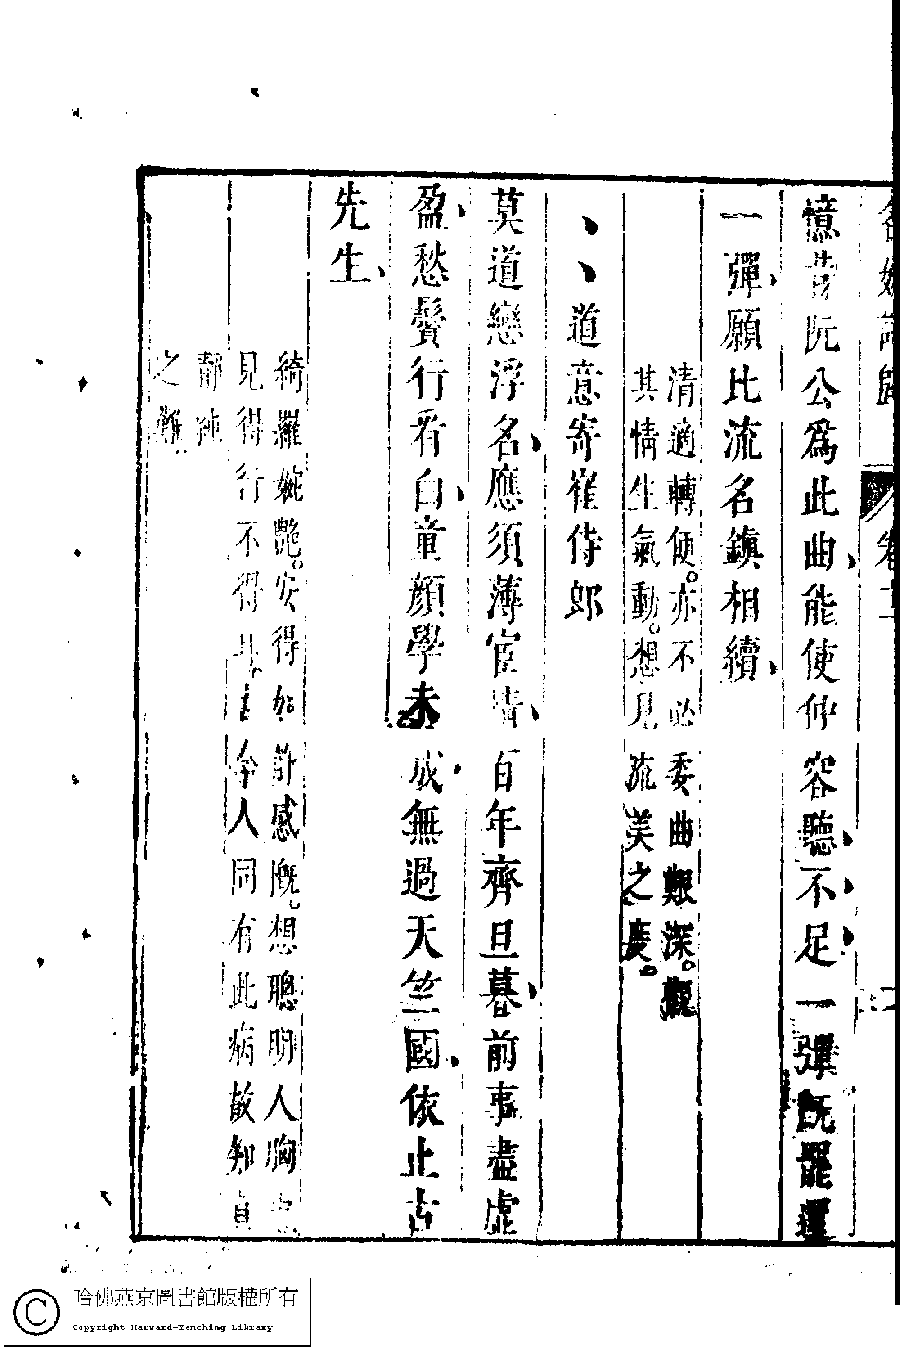 名媛詩歸 卷十一
憶昔阮公為此曲能使仲容聽不足一彈既罷還
一彈願比流名鎮相續
清適轉便。亦不必委曲艱深。觀
其情生氣動。想見流美之度。
道意寄崔侍郎
莫道戀浮名應須薄宦情百年齊旦暮前事盡虛
盈愁鬢行看白童顏學未成無過天竺國依止古
先生
綺羅婉艷。安得如許感慨。想聰明人胸中
見得行不得耳。言今人同有此病故知真
靜神
之難
哈佛燕京圖書館版權所有
Copyright Harvard-Yenching Library